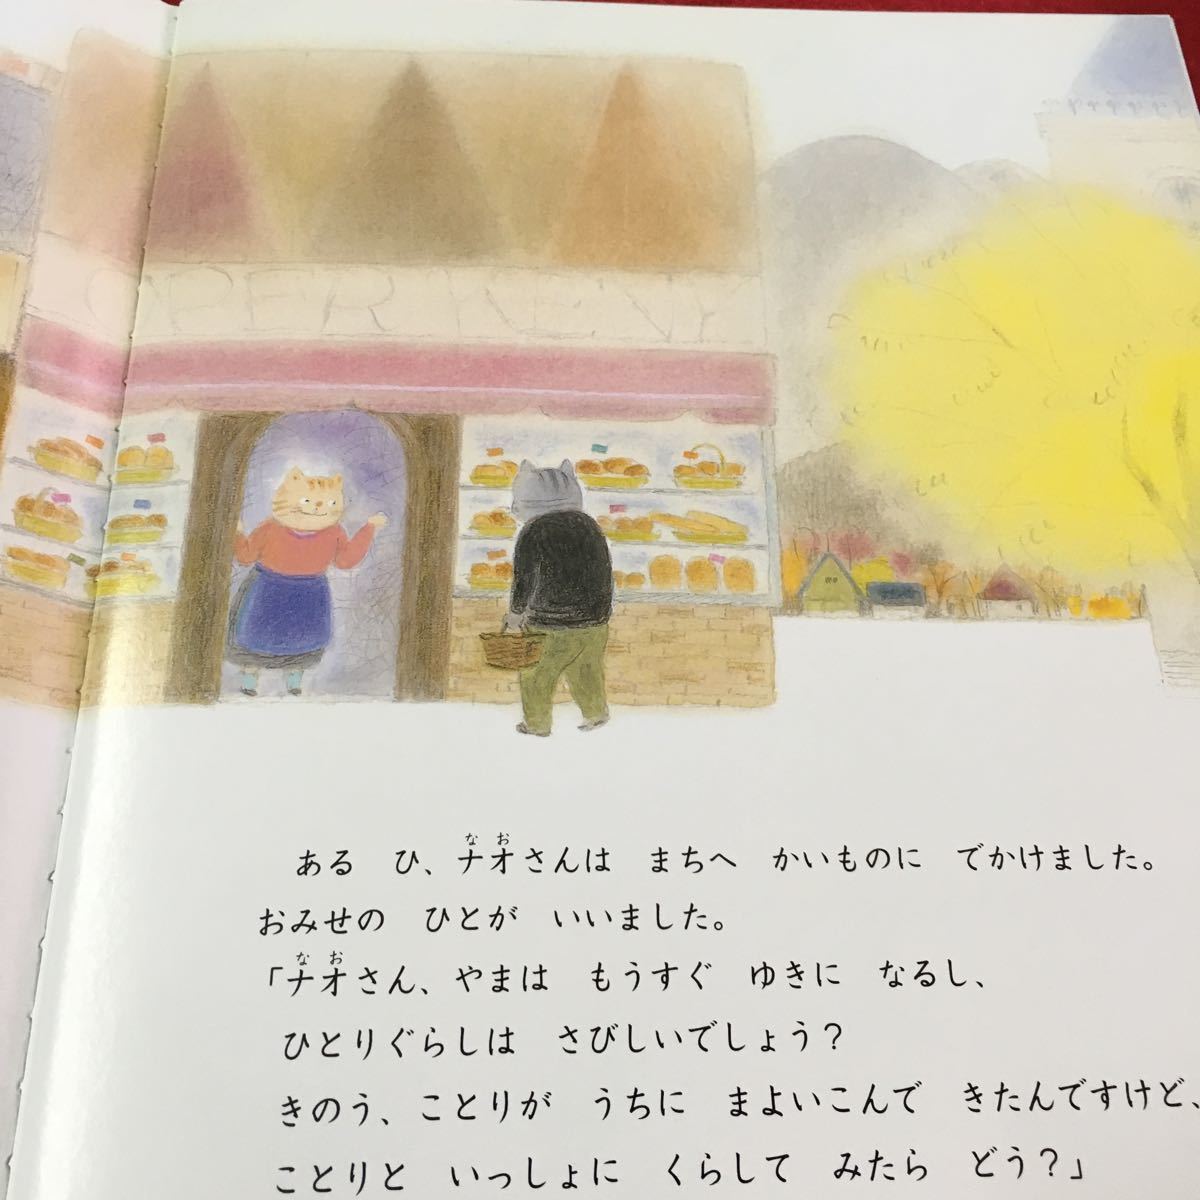 ある　ひ、ナオさんは　まちへ　かいものに　でかけました。
おみせの　ひとが　いいました。
「ナオさん、やまは　もうすぐ　ゆきに　なるし、
ひとりぐらしは　さびしいでしょう？
きのう、ことりが　うちに　まよいこんで　きたんですけど、
ことりと　いっしょに　くらして　みたら　どう？」